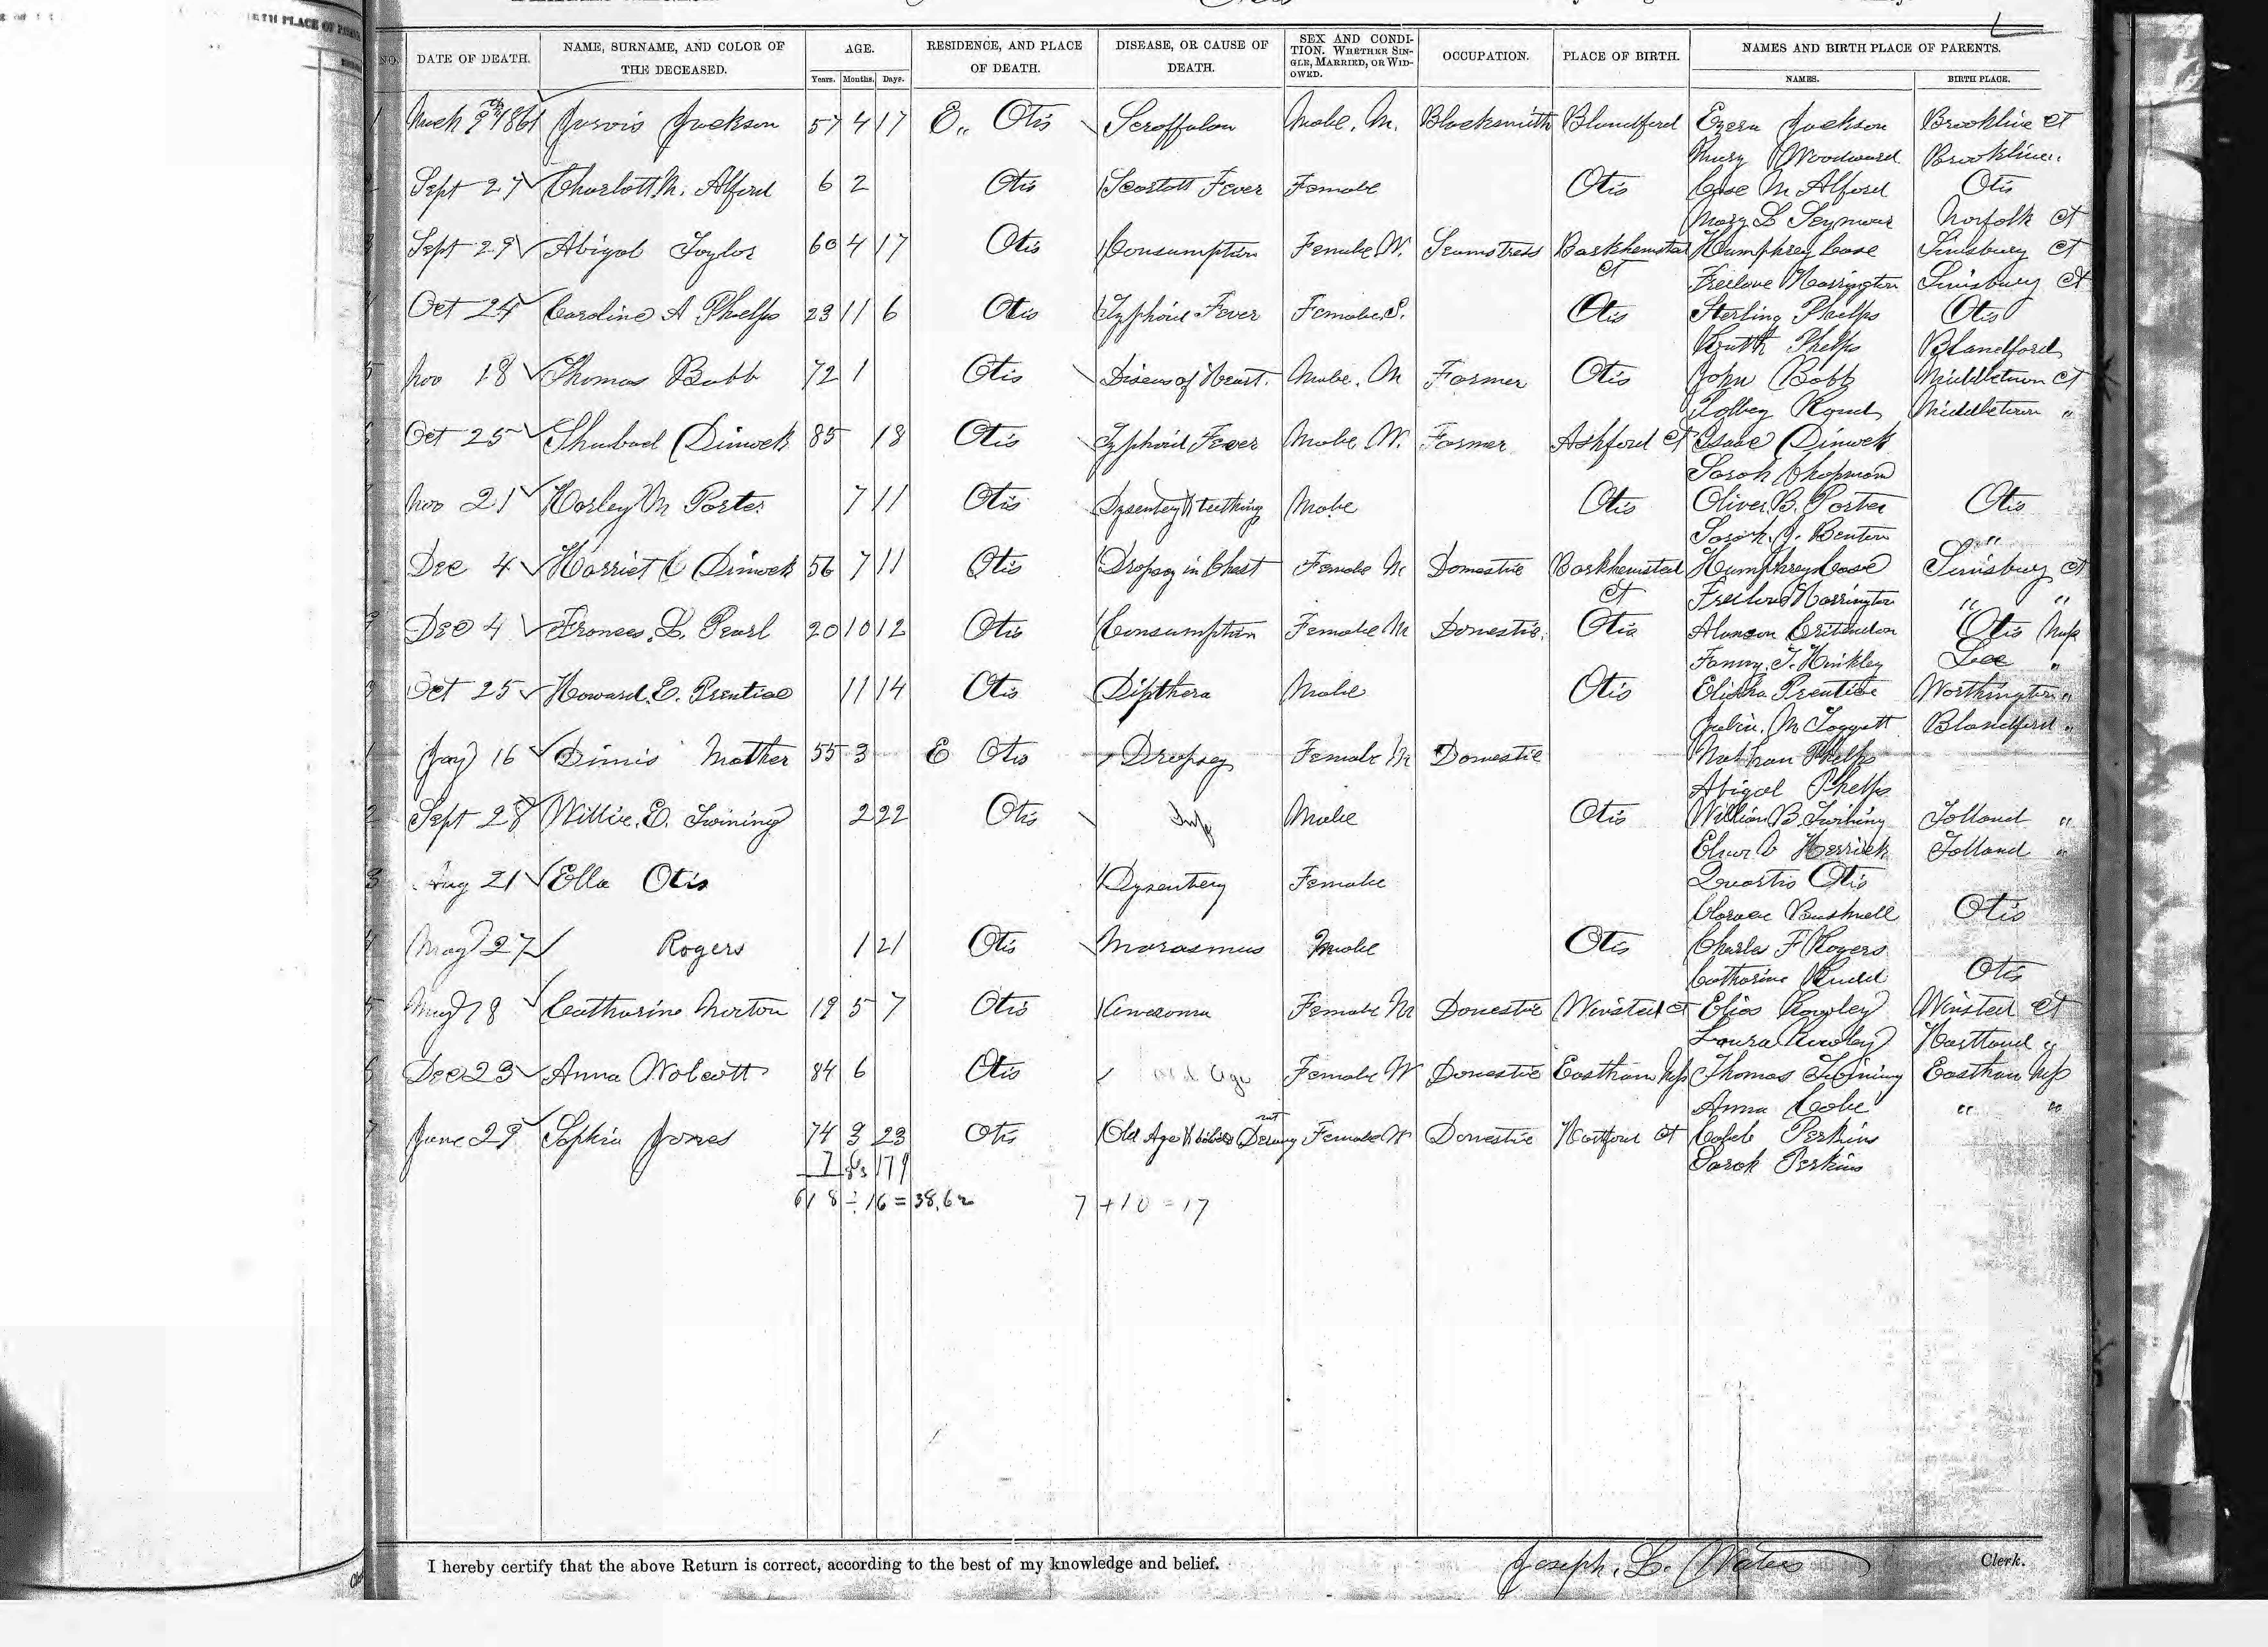 NO. DATE OF DEATH. NAME, SURNAME, AND COLOR OF THE DECEASED. AGE. Years. Months. Days. RESIDENCE, AND PLACE OF DEATH. DISEASE, OR CAUSE OF DEATH. SEX AND CONDITION. WHETHER SINGLE, MARRIED, OR WIDOWED. OCCUPATION. PLACE OF BIRTH. NAMES AND BIRTH PLACE OF PARENTS. NAMES. BIRTH PLACE.
1 March 9th 1861 Jarvis Jackson 57 4 17 E,, Otis Scroffalou Male. M. Blacksmith Blandford Ezera Jackson Brookline Ct
Mary Woodward Brookline,,
Sept 27 Charlott M. Alford 6 2 Otis Scarlott Fever Female Otis Case M Alford Otis
Mary L Seymour Norfolk Ct
3 Sept 29 Abigal Taylor 60 4 17 Otis Consumption Female W. Seamstress Barkhemsted Ct Humphrey Case Simsbury Ct
Freelove Harrington Simsbury Ct
4 Oct 24 Caroline A Phelps 23 11 6 Otis Typhoid Fever Female S. Otis Sterling Phelps Otis
Ruth Phelps Blandford
5 Nov 18 Thomas Babb 72 1 Otis Diseas of Heart. Male. M Farmer Otis John Babb Middletown Ct
Middletown "
Oct 25 Shubael Dimock 85 18 Otis Typhoid Fever Male W. Farmer Ashford Ct Isaac Dimock
Sarah Chapman
Nov 21 Harley M Porter 7 11 Otis Dysentey & teething Male Otis Oliver B. Porter Otis
Sarah J. Benton "
Dec 4 Harriet C Dimock 56 7 11 Otis Dropsy in Chest Female M Domestic Barkhemsted Ct Humphrey Case Simsbury Ct
Freelove Harrington " "
9 Dec 4 Frances L. Pearl 20 10 12 Otis Consumption Female M Domestic. Otis Alanson Critendon Otis Mass
Fanny T. Hinkley Lee "
Oct 25 Howard E. Prentice 11 14 Otis Dipthera Male Otis Elisha Prentice Worthington "
Julia M Taggett Blandford "
1 Jay 16 Dimis Mather 55 3 E Otis Dropsey Female M Domestic Nathan Phelps
Abigal Phelps
2 Sept 28 Willie E. Twining 2 22 Otis Inf Male Otis William B Twining Tolland "
Herrick Tolland "
3 Aug 21 Ella Otis Dysentery Female Quartis Otis
Bushnell Otis
4 May 27 Rogers 1 21 Otis Marasmus Male Otis Charles F Rogers
Catharine Rudd Otis
5 May 18 Catharine Morton 19 5 7 Otis Female M Domestic Winsted Ct Elias Rowley Winsted Ct
Laura Rowley Hartland "
6 Dec 23 Anna Wolcott 84 6 Otis Old Age Female W Domestic Eastham Mass Thomas Twining Eastham Mass
Anna Cole " "
7 June 29 Sophia Jones 74 3 23 Otis Old Age & Female W Domestic Hartford Ct Caleb Perkins
Sarah Perkins
618 ÷ 16 = 38.62 7 + 10 = 17
I hereby certify that the above Return is correct, according to the best of my knowledge and belief. Joseph. L. Waters Clerk.